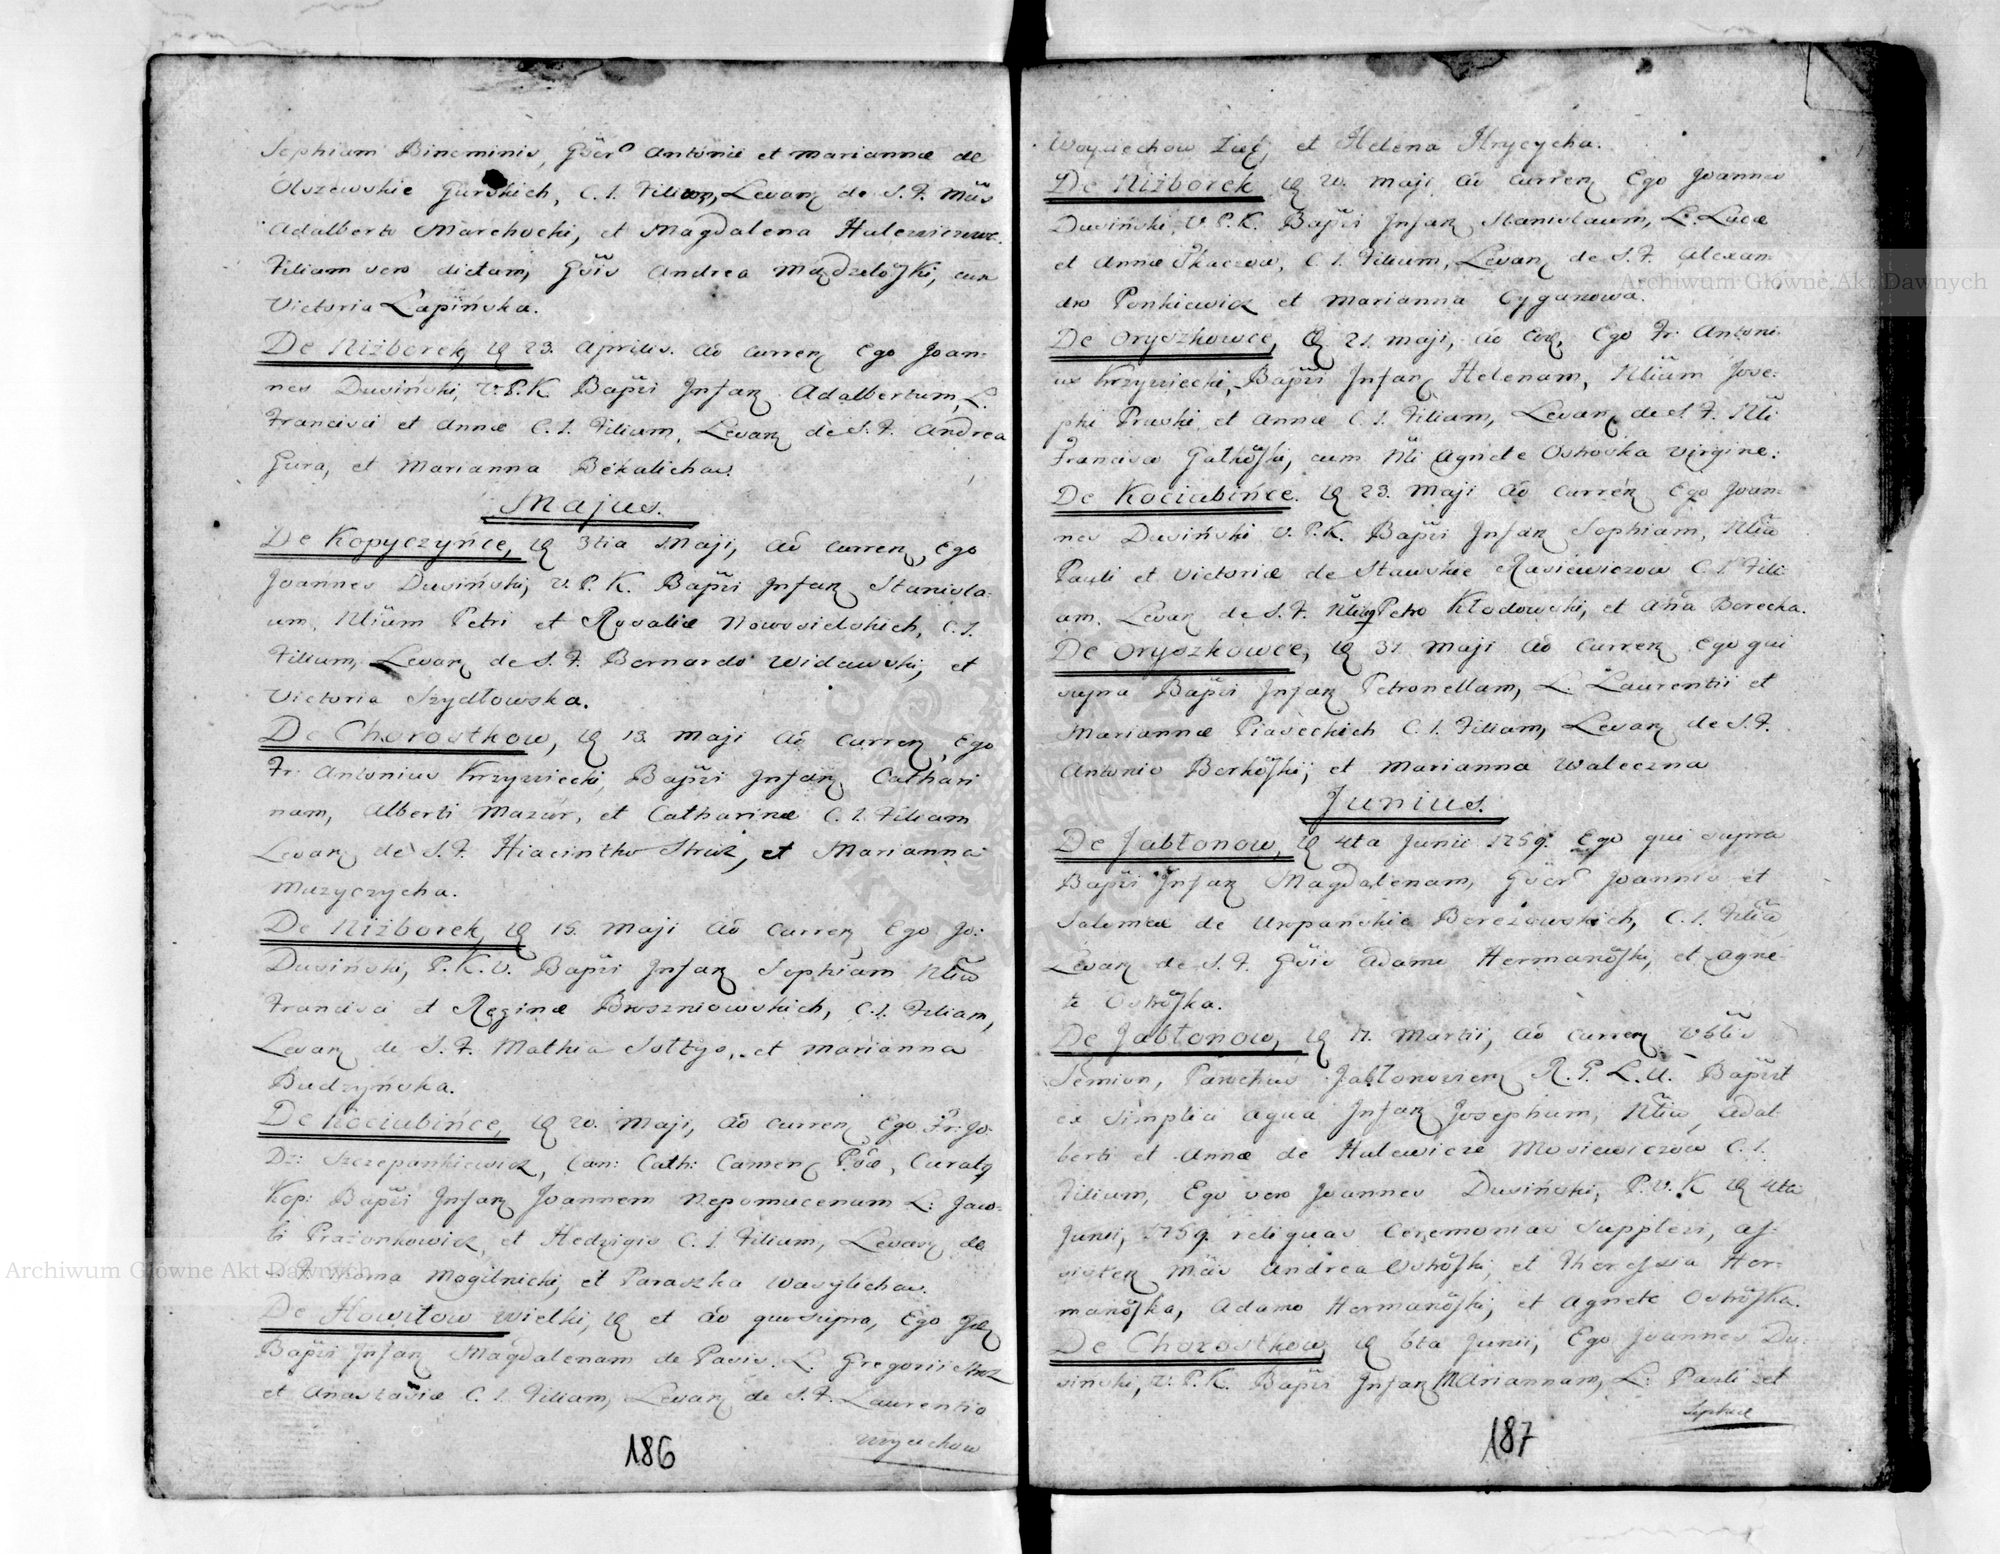 Sophiam Binominis, Gner Antonii et Mariannæ de
Olszewskie Gurskich, C. I. Filiam, Levan de S. F. Mus
Adalberto Marchocki, et Magdalena Halewiczowa.
Filiam vero dictam, Gsis Andrea
Victoria Łapińska.
De Niżborek, 23. Aprilis. Ao curren Ego Joan-
nes Dusiński, V. P. K. Bapzi Infan Adalbertum, L.
Francisci et Annæ C. I. Filium, Levan de S. F. Andrea
Gura, et Marianna Bekalicha.
Majus.
De Kopyczyńce, 3tia Maji, Ao curren Ego
Joannes Dusiński, V. P. K. Bapzi Infan Stanisla-
um, Nlium Petri et Rosaliæ Nowosielskich, C. I.
Filium, Levan de S. F. Bernardo Widawski, et
Victoria Szydłowska.
De Chorostkow, 13. Maji Ao curren Ego
Fr. Antonius Krzywiecki, Bapzi Infan Cathari
nam, Alberti Mazur, et Catharinæ C. I. Filiam
Levan de S. F. Hiacintho Struz, et Marianna
Muzyczycha.
De Niżborek, 15. Maji Ao curren Ego Jo:
Dusiński, P. K. V. Bapzi Infan Sophiam Nliu
Francisci et Reginæ Broszniowskich, C. I. Filiam,
Levan de S. F. Mathia Sołtys, et Marianna
Budzyńska.
De Kociubińce, 20. Maji, Ao curren Ego Fr: Jo:
Dz: Szczepankiewicz, Can: Cath: Camen Curatq
Kop: Bapzi Infan Joannem Nepomucenum L: Jaco-
bi Prażonkowicz, et Hedvigis C. I. Filium, Levan de
S. F. Thoma Mogilnicki, et Paraszka Wasylicha.
De Howiłow Wielki, et Ao quo supra, Ego
Bapzi Infan Magdalenam de Pasis. L. Gregorii
et Anastasiæ C. I. Filiam, Levan de S. F. Laurentio
Woyciechow
186
Woyciechow et Helena Hrycycha.
De Niżborek 20. Maji Ao curren Ego Joannes
Dusiński, V. P. K. Bapzi Infan Stanislaum, L. Lucæ
et Annæ Tkaczow, C. I. Filium, Levan de S. F. Alexan
dro Ponkiewicz et Marianna Cyganowa.
De Oryszkowce, 21. Maji, Ao Cor, Ego Fr. Antoni-
us Krzywiecki, Bapzi Infan Helenam, Nlium Jose-
phi Pruski et Annæ C. I. Filiam, Levan de S. F. Nli
Francisco cum Nli Agnete Ostroska virgine.
De Kociubińce. 23. Maji Ao curren Ego Joan-
nes Dusiński V. P. K. Bapzi Infan Sophiam, Nliu
Pauli et Victoriæ de Stawskie Rasiewiczow C. I. Fili-
am. Levan de S. F. Petro Kłodowski, et Aña Borecka.
De Oryszkowce, 31. Maji Ao curren Ego qui
supra Bapzi Infan Petronellam, L. Laurentii et
Mariannæ Piaseckich C. I. Filiam, Levan de S. F.
Antonio et Marianna Waleczna
Junius.
De Jabłonow, 4ta Junii 1759. Ego qui supra
Bapzi Infan Magdalenam, Gner Joannis et
Salomeæ de Uropańskie Bereżowskich, C. I. Filia
Levan de S. F. Gsis Adamo et Agne-
te
De Jabłonow, 17. Martii, Ao curren
Semion, Parochus Jabłonovien R. G. L. U. Bapzit
ex Simplici aqua Infan Josephum, Nliu, Adal-
berti et Annæ de Halewicze Mosiewiczow C. I.
Filium, Ego vero Joannes Dusiński, P. V. K 4ta
Junii, 1759. reliquas Ceremonias Supplevi, as-
sisten Mus Andrea et Theressia Her-
Adamo et Agnete
De Chorostkow, 6ta Junii, Ego Joannes Du-
sinski, V. P. K. Bapzi Infan Mariannam, L: Pauli et
Sophiæ
187
Archiwum Główne Akt Dawnych
Archiwum Główne Akt Dawnych